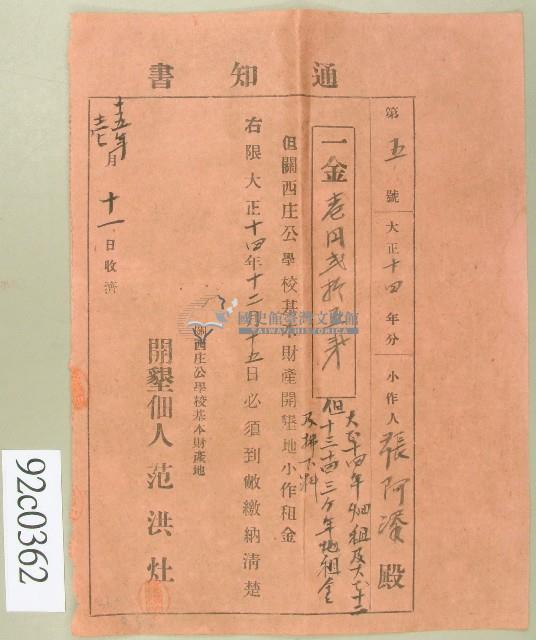 通知書
第五號 大正十四年分 小作人 張阿 殿
一金壱円弐拾
大正十四年畑租及大正十二
但十三十四三ヶ年地租金
及拂下料
但關西庄公學校基本財產開墾地小作租金
右限大正十四年十二月十五日必須到敝繳納清楚
關西庄公學校基本財產地
開墾佃人 范洪灶
十五年壱月十一日收濟
國史館臺灣文獻館
TAIWAN HISTORICA
92c0362